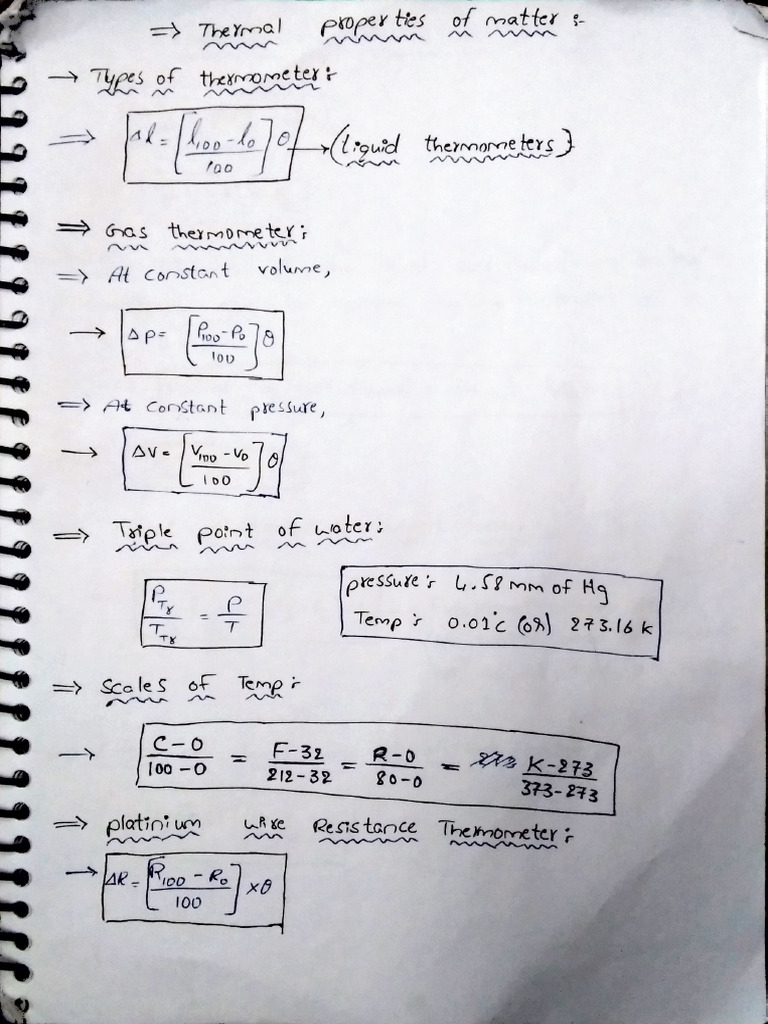 ⇒ Thermal properties of matter :-
→ Types of thermometer :
⇒ Δl = [l₁₀₀ - l₀ / 100] θ → (liquid thermometers}
⇒ Gas thermometer :
⇒ At constant volume,
→ ΔP = [P₁₀₀ - P₀ / 100] θ
⇒ At constant pressure,
→ ΔV = [V₁₀₀ - V₀ / 100] θ
⇒ Triple point of water :
P_Tr / T_Tr = P / T
pressure : 4.58 mm of Hg
Temp : 0.01°c (or) 273.16 k
⇒ scales of Temp :
→ C-0 / 100-0 = F-32 / 212-32 = R-0 / 80-0 = K-273 / 373-273
⇒ platinium wire Resistance Thermometer :
→ ΔR = [R₁₀₀ - R₀ / 100] × θ